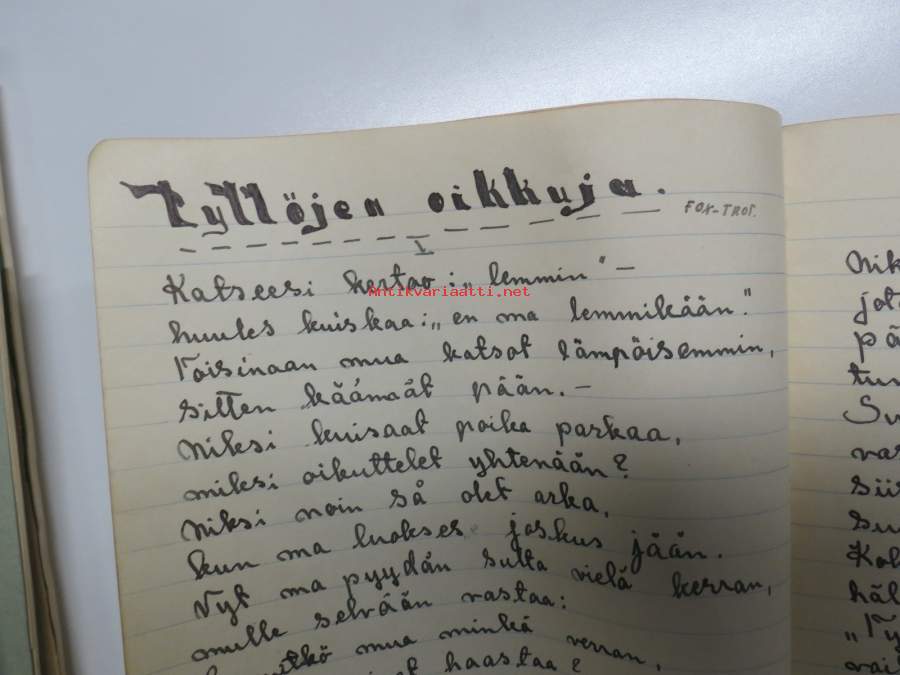 Tyttöjen oikkuja.
FOX-TROT.
I
Katseesi kertoo: „lemmin" –
huules kuiskaa: „en ma lemmikään".
Toisinaan mua katsot lämpöisemmin,
sitten käännät pään. –
Miksi kiusaat poika parkaa,
miksi oikuttelet yhtenään?
Miksi noin sä olet arka,
kun ma luokses joskus jään.
Nyt ma pyydän sulta vielä kerran,
mulle selvään vastaa:
mua minkä verran,
haastaa?
Antikvariaatti.net